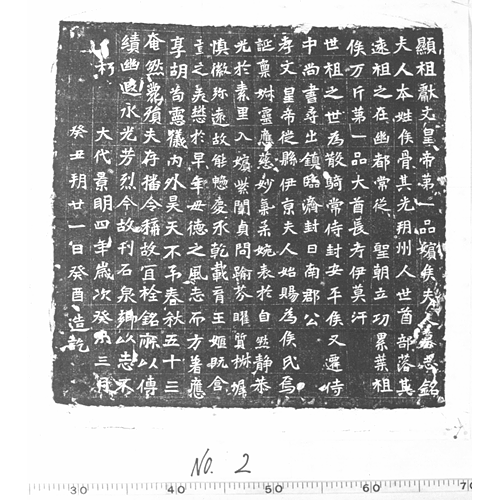 顯祖獻文皇帝第一品嬪侯夫人墓誌銘
夫人本姓侯骨其先朔州人世酋部落其
遠祖之在幽都常從聖朝立功累葉祖
俟万斤第一品大酋長考伊莫汗
世祖之世為散騎常侍封安平侯又遷侍
中尚書尋出鎮臨濟封日南郡公
孝文皇帝從縣伊京夫人始賜為侯氏焉
誕稟淑靈應茲妙氣柔婉表於自然靜恭
光於素里入嬪紫闈貞問踰芬曜質椒墀
慎徽弥遠故能憁慶承乾載育王姬既含
章之美懋於早年母德之風志而方著應
享胡耇霞儀內外昊天不弔春秋五十三
奄然薨殞夫存播令稱故宜栓銘所以傳
績幽遐永光芳烈今故刊石泉鄉以志不
朽
大代景明四年歲次癸未三月
癸丑朔廿一日癸酉造訖
No. 2
30 40 50 60 70